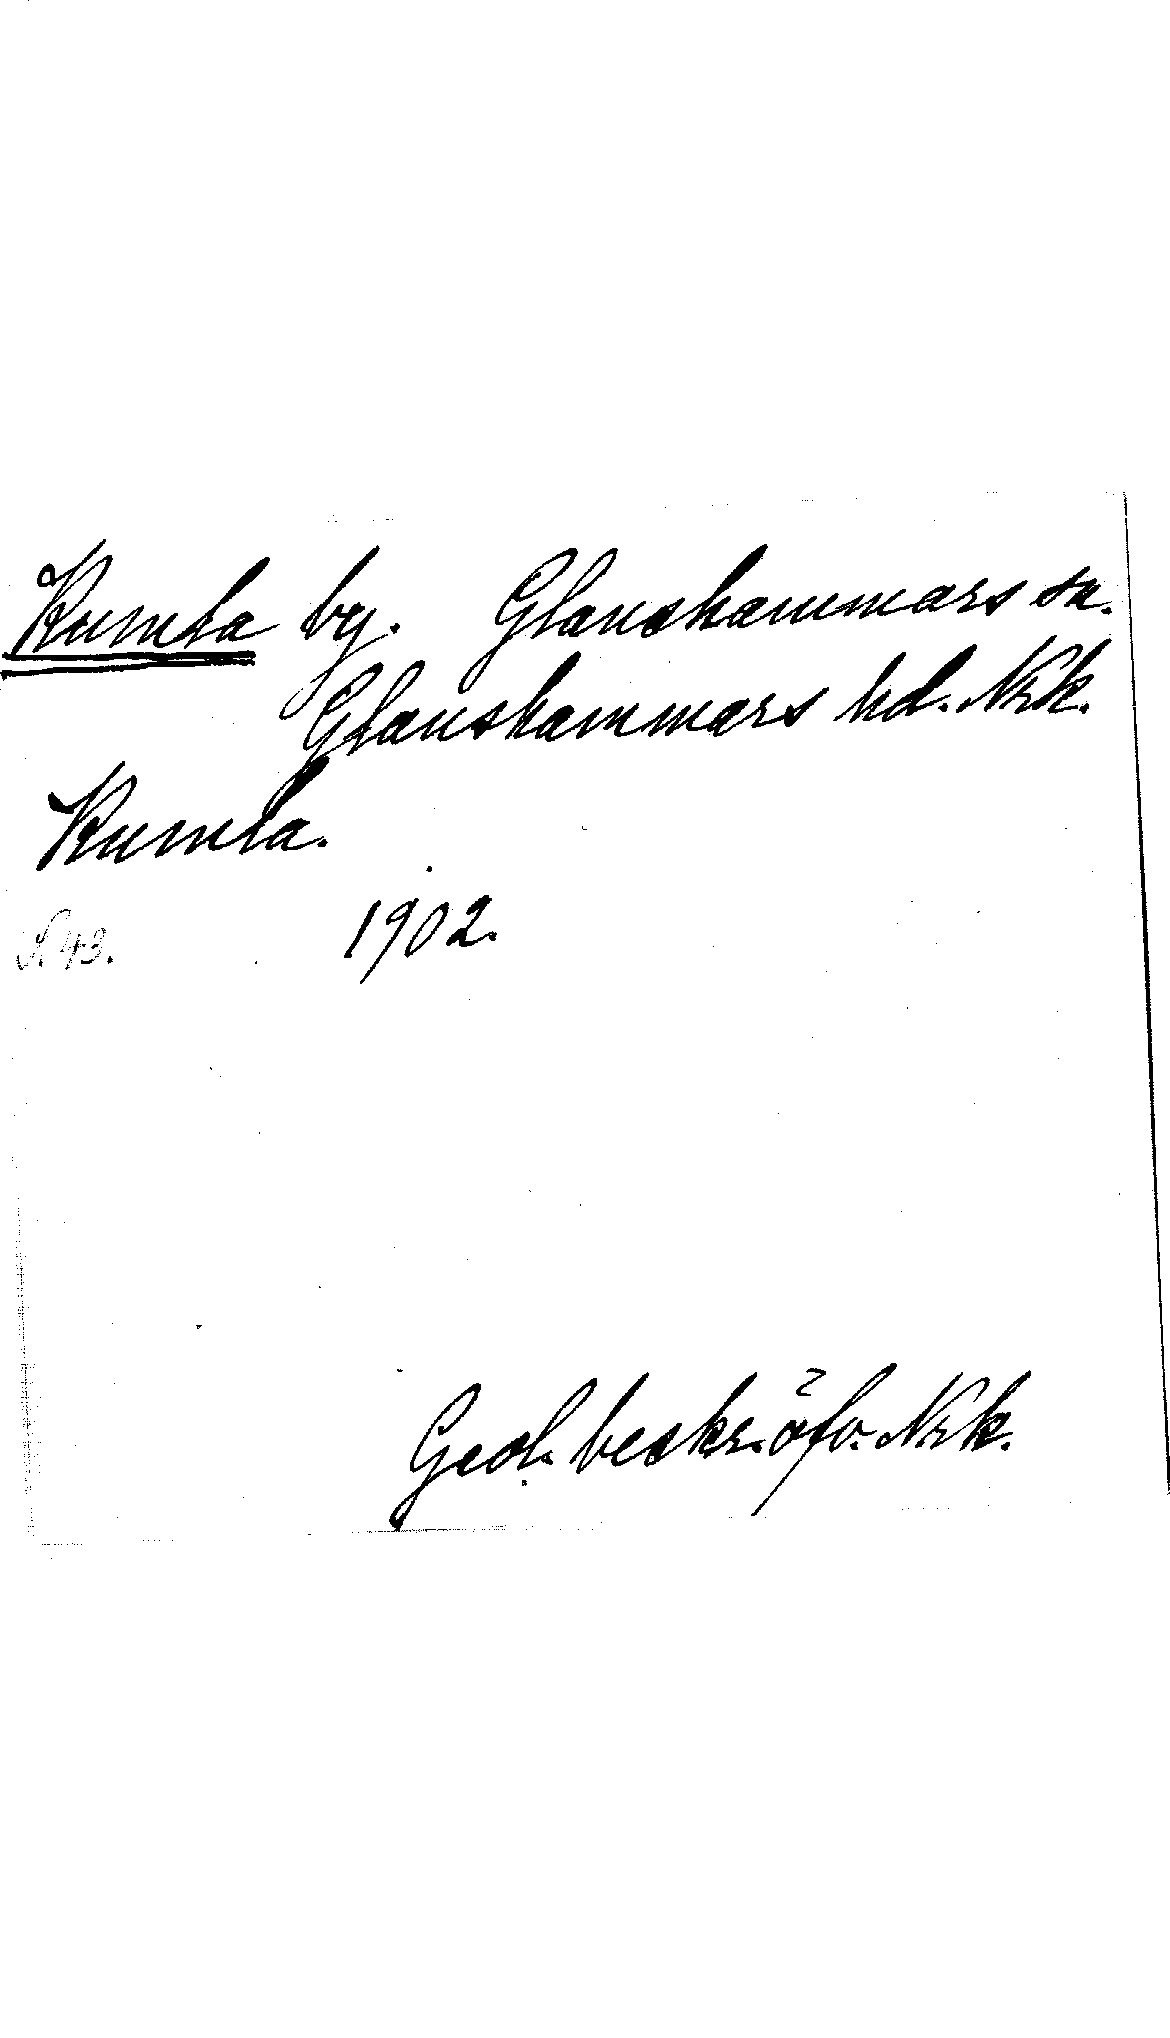 Kumla by. Glanshammars sn.
Glanshammars hd. Nrk.
Kumla.
S. 43. 1902.
Geol. beskr. öfv. Nrk.